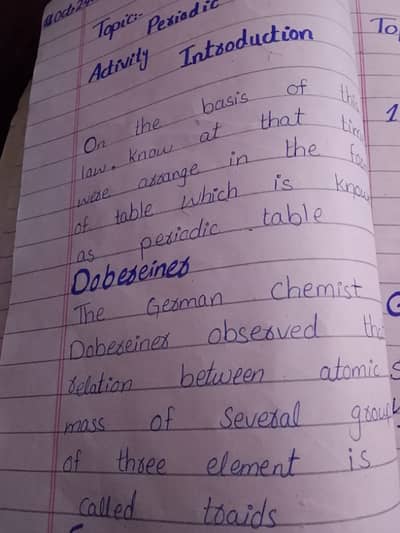 Topic:- Periodic
Activity Introduction
On the basis of this
law. know at that time
were arrange in the
of table which is know
as periodic table
Dobereiner
The German chemist
Dobereiner observed the
relation between atomic
mass of several group
of three element is
called traids
To
1